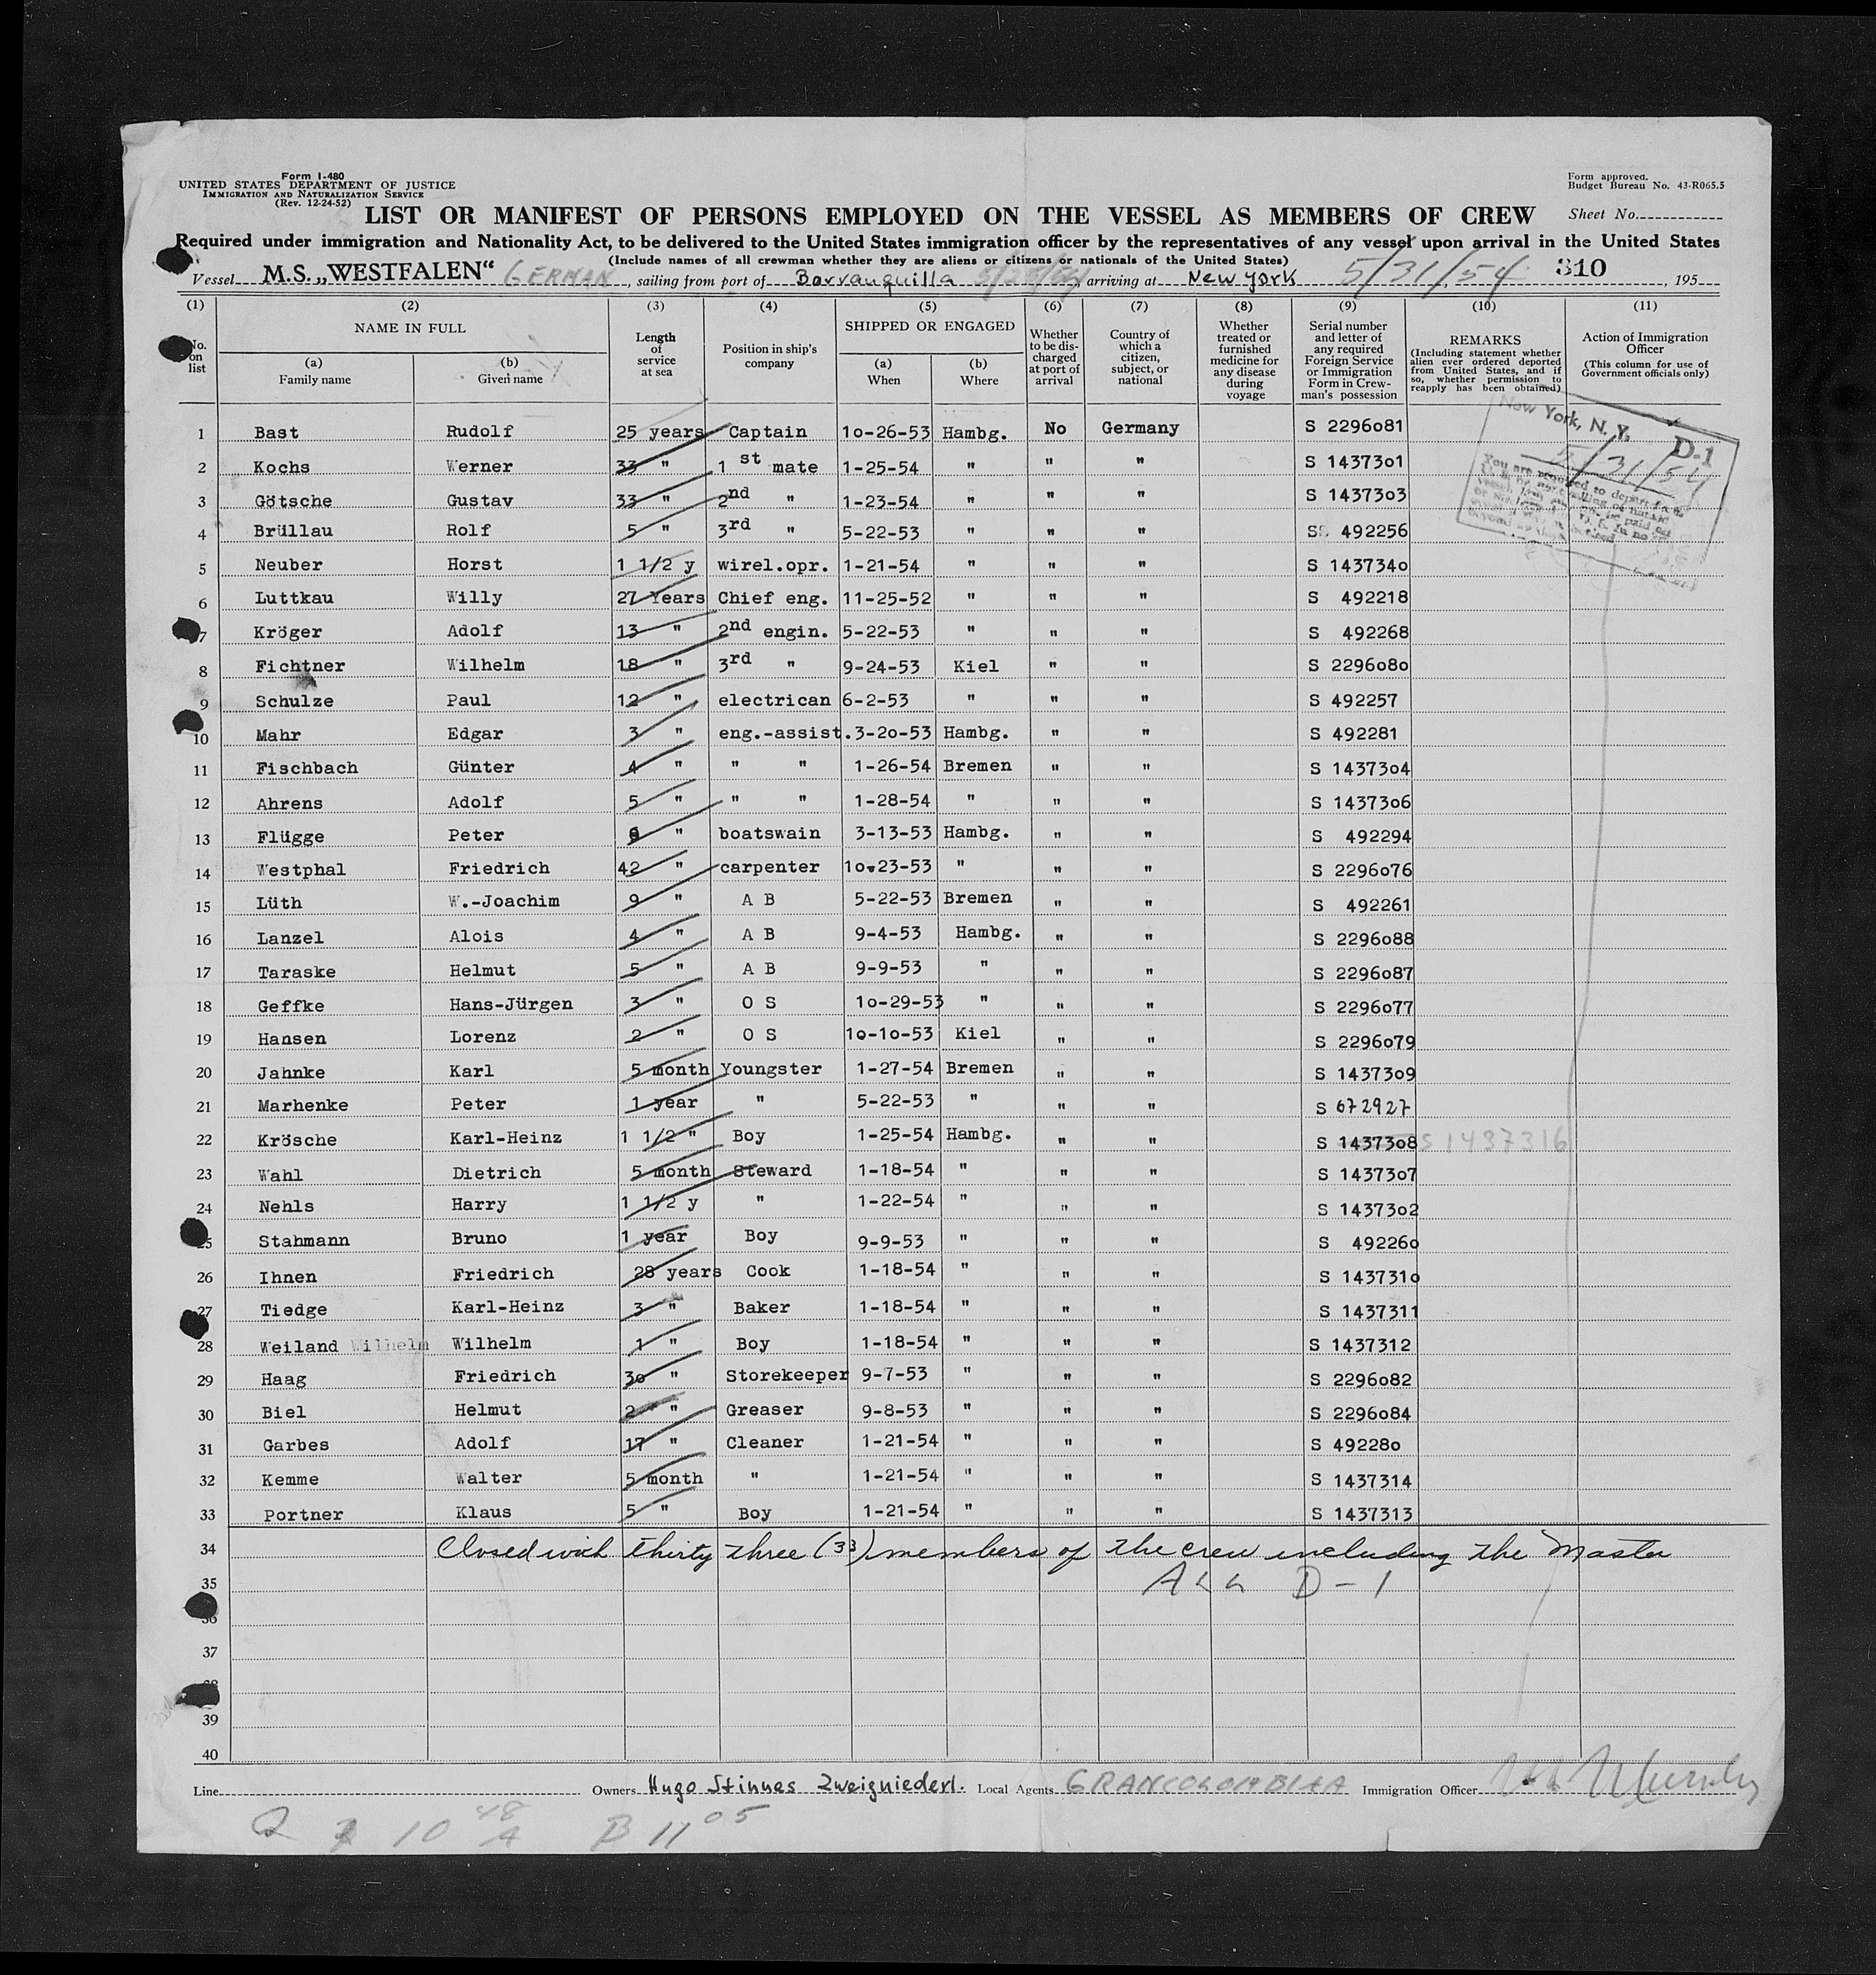 Form I-480
UNITED STATES DEPARTMENT OF JUSTICE
IMMIGRATION AND NATURALIZATION SERVICE
(Rev. 12-24-52)
Form approved.
Budget Bureau No. 43-R065.5
LIST OR MANIFEST OF PERSONS EMPLOYED ON THE VESSEL AS MEMBERS OF CREW
Sheet No.
Required under immigration and Nationality Act, to be delivered to the United States immigration officer by the representatives of any vessel upon arrival in the United States
(Include names of all crewman whether they are aliens or citizens or nationals of the United States)
Vessel M.S. „WESTFALEN“ GERMAN, sailing from port of Barranquilla 5/25/54, arriving at New York 5/31/54 310, 195
(1) (2) (3) (4) (5) (6) (7) (8) (9) (10) (11)
No. on list
NAME IN FULL
(a) Family name
(b) Given name
Length of service at sea
Position in ship's company
SHIPPED OR ENGAGED
(a) When
(b) Where
Whether to be discharged at port of arrival
Country of which a citizen, subject, or national
Whether treated or furnished medicine for any disease during voyage
Serial number and letter of any required Foreign Service or Immigration Form in Crewman's possession
REMARKS
(Including statement whether alien ever ordered deported from United States, and if so, whether permission to reapply has been obtained)
Action of Immigration Officer
(This column for use of Government officials only)
New York, N. Y.
D-1
5/31/54
1 Bast Rudolf 25 years Captain 10-26-53 Hambg. No Germany S 2296081
2 Kochs Werner 33 " 1st mate 1-25-54 " " " S 1437301
3 Götsche Gustav 33 " 2nd " 1-23-54 " " " S 1437303
4 Brüllau Rolf 5 " 3rd " 5-22-53 " " " S 492256
5 Neuber Horst 1 1/2 y wirel.opr. 1-21-54 " " " S 1437340
6 Luttkau Willy 27 Years Chief eng. 11-25-52 " " " S 492218
7 Kröger Adolf 13 " 2nd engin. 5-22-53 " " S 492268
8 Fichtner Wilhelm 18 " 3rd " 9-24-53 Kiel " " S 2296080
9 Schulze Paul 12 " electrican 6-2-53 " " " S 492257
10 Mahr Edgar 3 " eng.-assist. 3-20-53 Hambg. " " S 492281
11 Fischbach Günter 4 " " " 1-26-54 Bremen " " S 1437304
12 Ahrens Adolf 5 " " " 1-28-54 " " " S 1437306
13 Flügge Peter " boatswain 3-13-53 Hambg. " " S 492294
14 Westphal Friedrich 42 " carpenter 10-23-53 " " " S 2296076
15 Lüth W.-Joachim 9 " A B 5-22-53 Bremen " " S 492261
16 Lanzel Alois 4 " A B 9-4-53 Hambg. " " S 2296088
17 Taraske Helmut 5 " A B 9-9-53 " " " S 2296087
18 Geffke Hans-Jürgen 3 " O S 10-29-53 " " " S 2296077
19 Hansen Lorenz 2 " O S 10-10-53 Kiel " " S 2296079
20 Jahnke Karl 5 month Youngster 1-27-54 Bremen " " S 1437309
21 Marhenke Peter 1 year " 5-22-53 " " " S 672927
22 Krösche Karl-Heinz 1 1/2 " Boy 1-25-54 Hambg. " " S 1437308 S 1437316
23 Wahl Dietrich 5 month Steward 1-18-54 " " " S 1437307
24 Nehls Harry 1 1/2 y " 1-22-54 " " " S 1437302
25 Stahmann Bruno 1 year Boy 9-9-53 " " " S 492260
26 Ihnen Friedrich 28 years Cook 1-18-54 " " " S 1437310
27 Tiedge Karl-Heinz 3 " Baker 1-18-54 " " " S 1437311
28 Weiland Wilhelm Wilhelm 1 " Boy 1-18-54 " " " S 1437312
29 Haag Friedrich 30 " Storekeeper 9-7-53 " " " S 2296082
30 Biel Helmut 2 " Greaser 9-8-53 " " " S 2296084
31 Garbes Adolf 17 " Cleaner 1-21-54 " " " S 492280
32 Kemme Walter 5 month " 1-21-54 " " " S 1437314
33 Portner Klaus 5 " Boy 1-21-54 " " " S 1437313
34 Closed with thirty three (33) members of the crew including the Master
35 All D-1
36
37
38
39
40
Line Owners Hugo Stinnes Zweigniederl. Local Agents GRANCOLOMBIANA Immigration Officer
10 48 A B 11 05